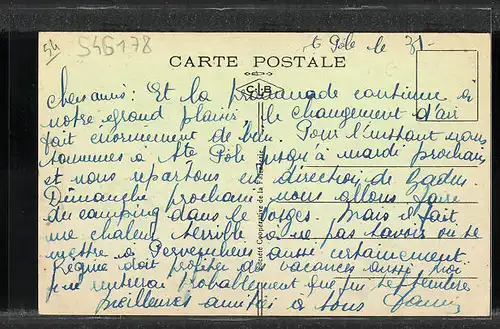 54
546178
Ste Pôle le 31-
CARTE POSTALE
C.L.B
Chers amis: Et la promenade continue à
notre grand plaisir, le changement d'air
fait enormement de bien. Pour l'instant nous
sommes à Ste Pôle jusqu'à mardi prochain
et nous repartons en direction de
Dimanche prochain nous allons faire
du camping dans les Vosges. Mais il fait
une chaleur terrible à ne pas savoir ou se
mettre à aussi certainement.
Régine doit profiter des vacances aussi, moi
je ne rentrerai probablement que fin septembre
meilleures amitiés à tous
Société Coopérative de la